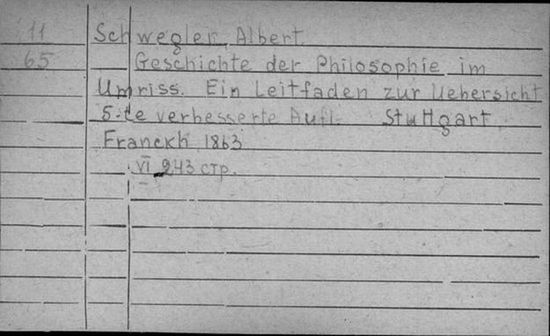 11 Schwegler, Albert.
65 Geschichte der Philosophie im
Umriss. Ein Leitfaden zur Uebersicht
5-te verbesserte Aufl. Stuttgart,
Franckh, 1863
VI, 243 стр.